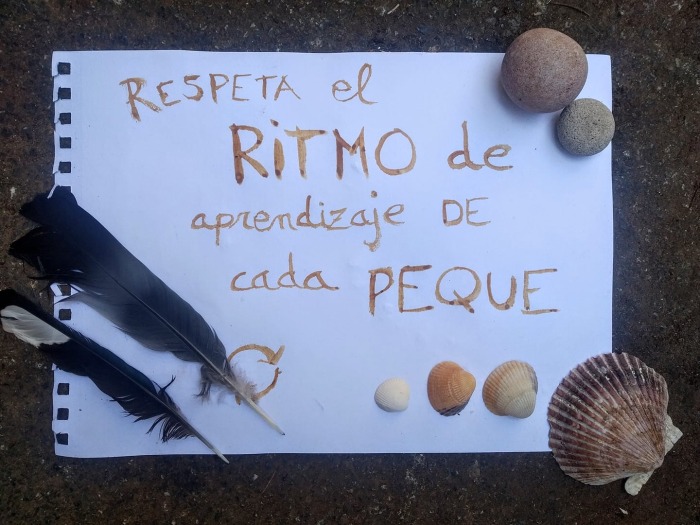 RESPETA el
RiTMO de
aprendizaje DE
cada PEQUE